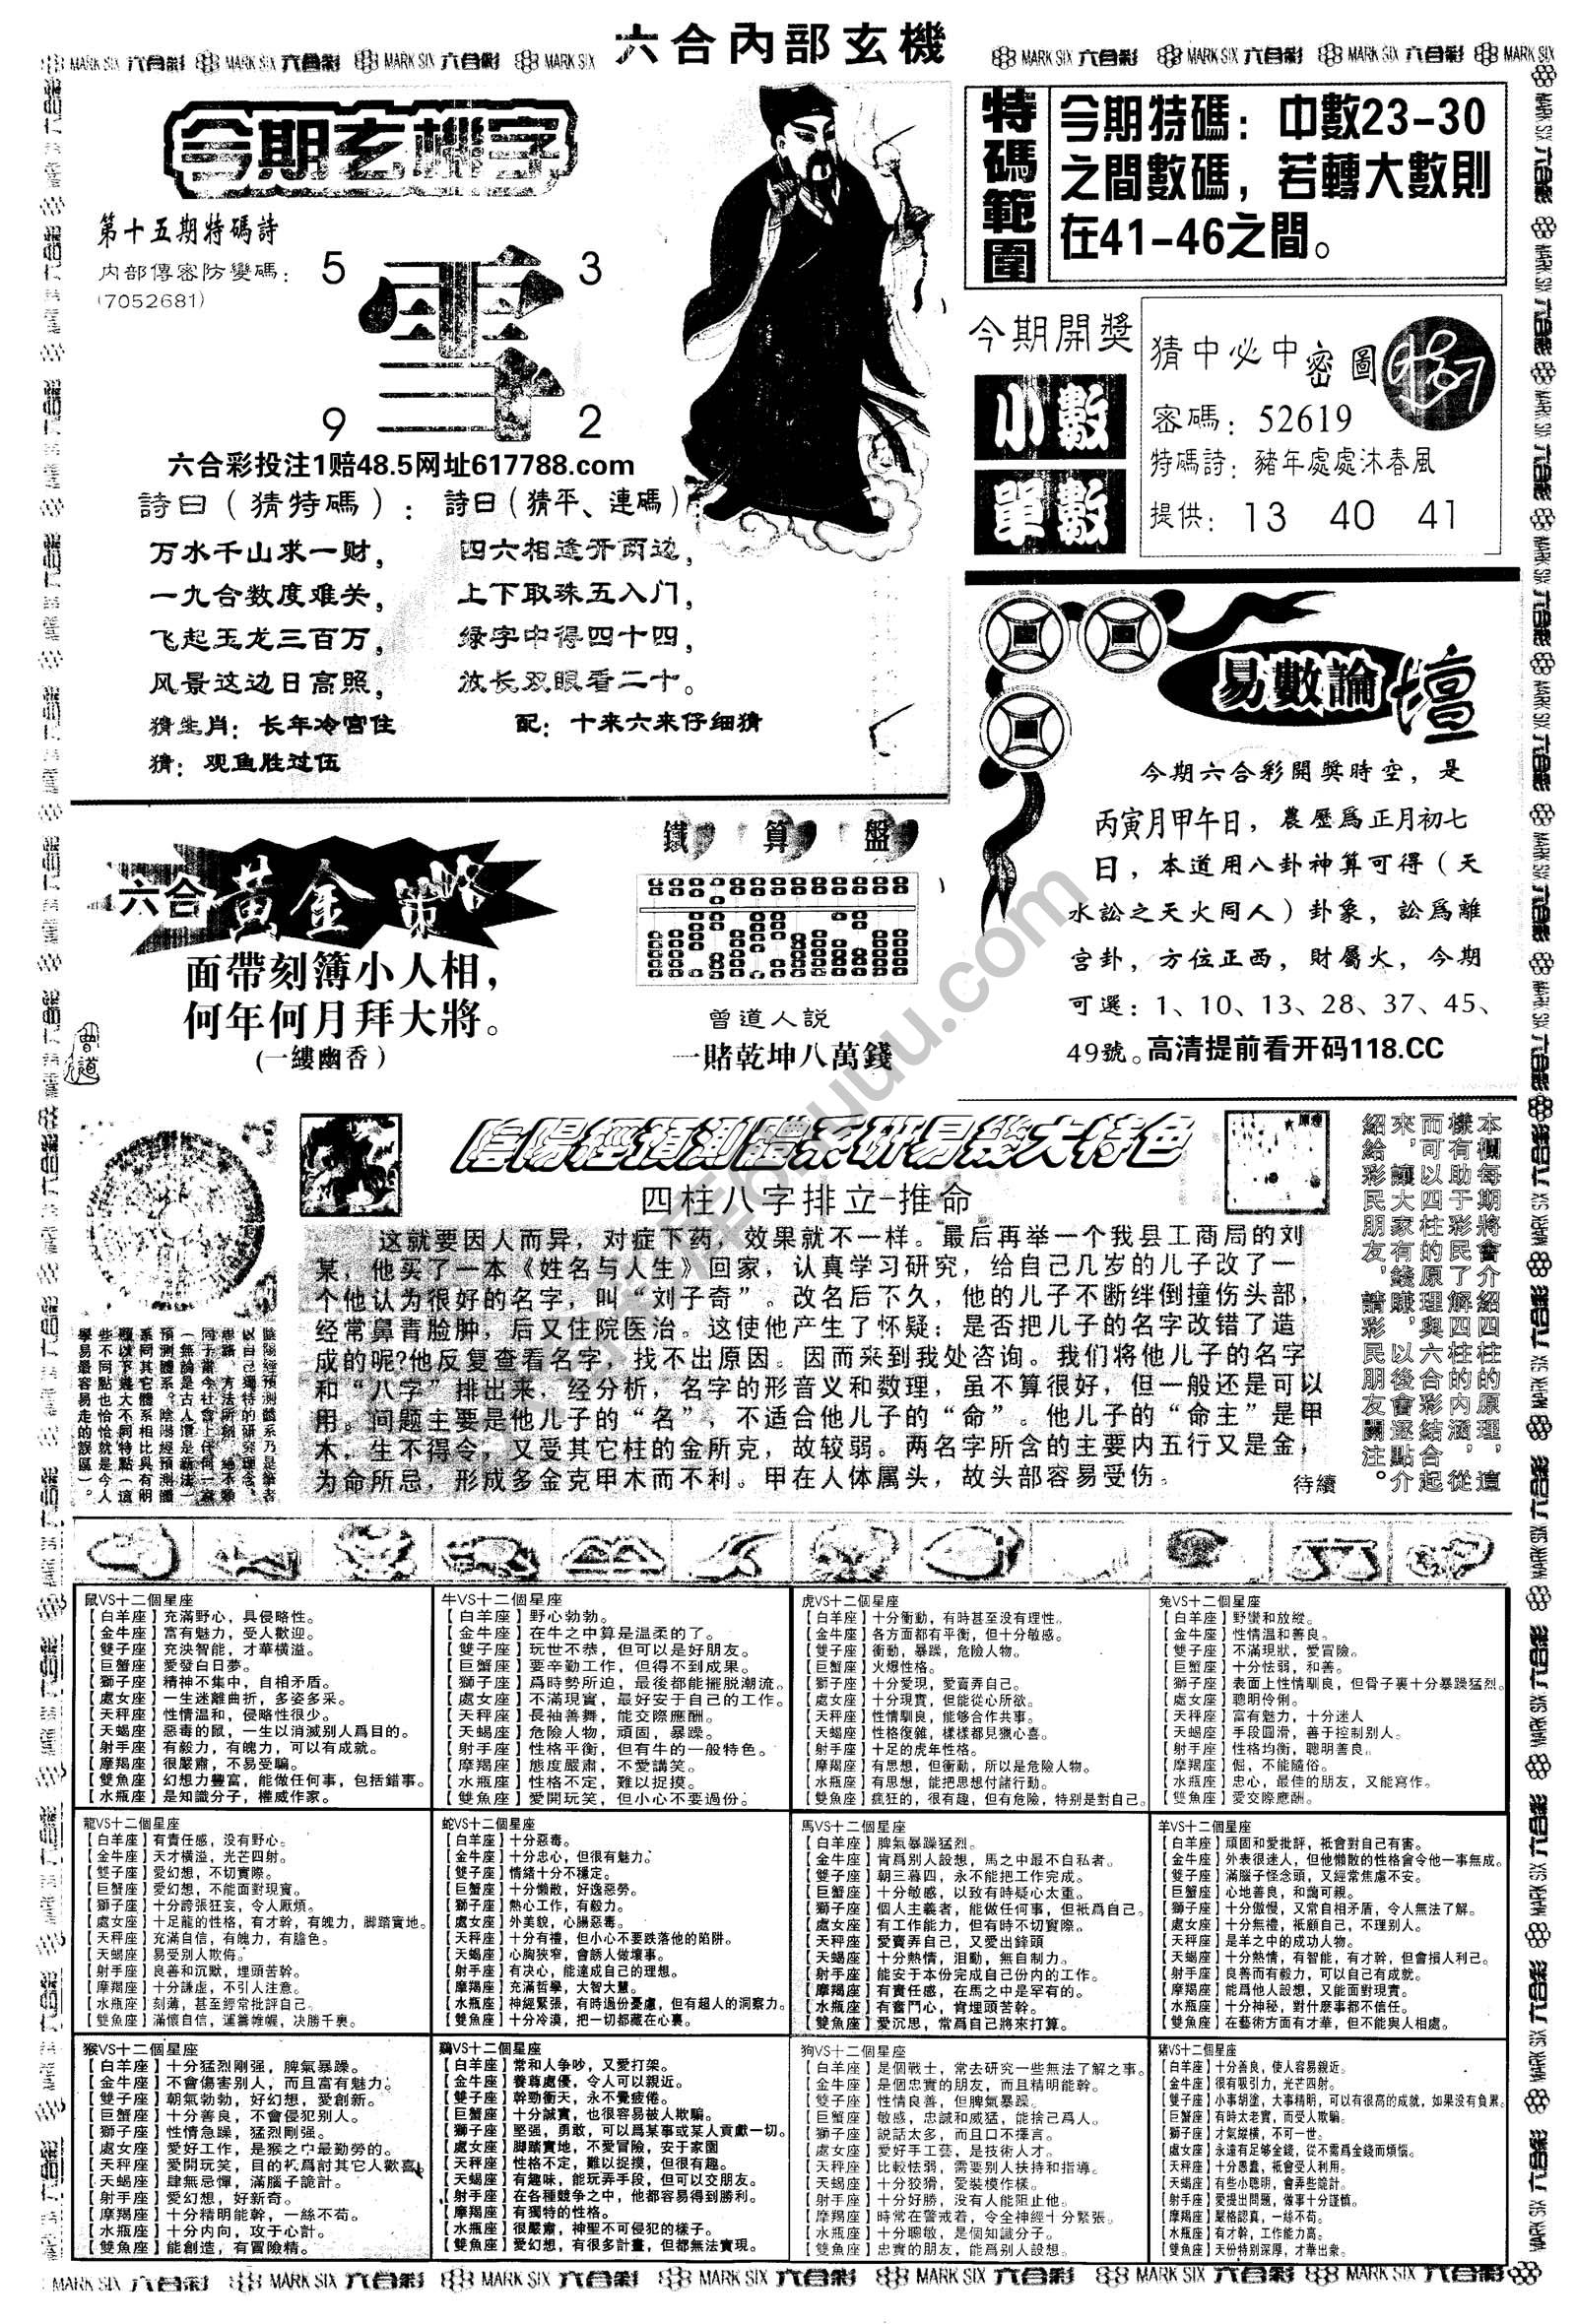 六合內部玄機
MARK SIX 六合彩 MARK SIX 六合彩 MARK SIX 六合彩 MARK SIX
MARK SIX 六合彩 MARK SIX 六合彩 MARK SIX 六合彩 MARK SIX
今期玄機字
第十五期特碼詩
内部傳密防變碼：
(7052681)
5
3
9
2
六合彩投注1赔48.5网址617788.com
詩曰（猜特碼）：
万水千山求一财，
一九合数度难关，
飞起玉龙三百万，
风景这边日高照，
猜生肖：长年冷宫住
猜：观鱼胜过伍
詩曰（猜平、連碼）
四六相逢开两边，
上下取珠五入门，
绿字中得四十四，
放长双眼看二十。
配：十来六来仔细猜
特碼範圍
今期特碼：中數23-30
之間數碼，若轉大數則
在41-46之間。
今期開獎
小數
單數
猜中必中密圖
密碼：52619
特碼詩：豬年處處沐春風
提供：13 40 41
易數論壇
今期六合彩開獎時空，是
丙寅月甲午日，農歷爲正月初七
日，本道用八卦神算可得（天
水訟之天火同人）卦象，訟爲離
宮卦，方位正西，財屬火，今期
可選：1、10、13、28、37、45、
49號。高清提前看开码118.CC
六合黃金策略
面帶刻簿小人相，
何年何月拜大將。
(一縷幽香)
曾道
鐵算盤
曾道人説
一賭乾坤八萬錢
陰陽經預測體系研易幾大特色
四柱八字排立-推命
这就要因人而异，对症下药，效果就不一样。最后再举一个我县工商局的刘
某，他买了一本《姓名与人生》回家，认真学习研究，给自己几岁的儿子改了一
个他认为很好的名字，叫“刘子奇”。改名后下久，他的儿子不断绊倒撞伤头部，
经常鼻青脸肿，后又住院医治。这使他产生了怀疑；是否把儿子的名字改错了造
成的呢?他反复查看名字，找不出原因。因而来到我处咨询。我们将他儿子的名字
和“八字”排出来，经分析，名字的形音义和数理，虽不算很好，但一般还是可以
用。问题主要是他儿子的“名”，不适合他儿子的“命”。他儿子的“命主”是甲
木，生不得令，又受其它柱的金所克，故较弱。两名字所含的主要内五行又是金，
为命所忌，形成多金克甲木而不利。甲在人体属头，故头部容易受伤。
待續
本欄每期將會介紹四柱的原理，這
樣有助于彩民了解四柱的内涵，從
而可以四柱的原理與六合彩結合起
來，讓大家有錢賺，以後會逐點介
紹給彩民朋友，請彩民朋友關注。
陰陽經預測體系乃是筆者
以自己獨特的研究理念、
思路、方法所創，絶不類
同于當今社會上任何一家
（無論是古人還是新法）
預測體系。陰陽經預測體
系同其它體系相比與有明
顯以下幾大不同特點（這
些不同點也恰恰就是今人
學易最容易走的誤區）。
鼠VS十二個星座
【白羊座】充滿野心，具侵略性。
【金牛座】富有魅力，受人歡迎。
【雙子座】充泱智能，才華橫溢。
【巨蟹座】愛發白日夢。
【獅子座】精神不集中，自相矛盾。
【處女座】一生迷離曲折，多姿多采。
【天秤座】性情温和，侵略性很少。
【天蝎座】惡毒的鼠，一生以消滅别人爲目的。
【射手座】有毅力，有魄力，可以有成就。
【摩羯座】很嚴肅，不易受騙。
【雙魚座】幻想力豐富，能做任何事，包括錯事。
【水瓶座】是知識分子，權威作家。
牛VS十二個星座
【白羊座】野心勃勃。
【金牛座】在牛之中算是温柔的了。
【雙子座】玩世不恭，但可以是好朋友。
【巨蟹座】要辛勤工作，但得不到成果。
【獅子座】爲時勢所迫，最後都能擺脱潮流。
【處女座】不滿現實，最好安于自己的工作。
【天秤座】長袖善舞，能交際應酬。
【天蝎座】危險人物，頑固，暴躁。
【射手座】性格平衡，但有牛的一般特色。
【摩羯座】態度嚴肅，不愛講笑。
【水瓶座】性格不定，難以捉摸。
【雙魚座】愛開玩笑，但小心不要過份。
虎VS十二個星座
【白羊座】十分衝動，有時甚至没有理性。
【金牛座】各方面都有平衡，但十分敏感。
【雙子座】衝動，暴躁，危險人物。
【巨蟹座】火爆性格。
【獅子座】十分愛現，愛賣弄自己。
【處女座】十分現實，但能從心所欲。
【天秤座】性情馴良，能够合作共事。
【天蝎座】性格復雜，樣樣都見獵心喜。
【射手座】十足的虎年性格。
【摩羯座】有思想，但衝動，所以是危險人物。
【水瓶座】有思想，能把思想付諸行動。
【雙魚座】瘋狂的，很有趣，但有危險，特别是對自己。
兔VS十二個星座
【白羊座】野蠻和放縱。
【金牛座】性情温和善良。
【雙子座】不滿現狀，愛冒險。
【巨蟹座】十分怯弱，和善。
【獅子座】表面上性情馴良，但骨子裏十分暴躁猛烈。
【處女座】聰明伶俐。
【天秤座】富有魅力，十分迷人
【天蝎座】手段圓滑，善于控制别人。
【射手座】性格均衡，聰明善良。
【摩羯座】倔，不能隨俗。
【水瓶座】忠心，最佳的朋友，又能寫作。
【雙魚座】愛交際應酬。
龍VS十二個星座
【白羊座】有責任感，没有野心。
【金牛座】天才橫溢，光芒四射。
【雙子座】愛幻想，不切實際。
【巨蟹座】愛幻想，不能面對現實。
【獅子座】十分誇張狂妄，令人厭煩。
【處女座】十足龍的性格，有才幹，有魄力，脚踏實地。
【天秤座】充滿自信，有魄力，有膽色。
【天蝎座】易受别人欺侮。
【射手座】良善和沉默，埋頭苦幹。
【摩羯座】十分謙虚，不引人注意。
【水瓶座】刻薄，甚至經常批評自己。
【雙魚座】滿懷自信，運籌帷幄，决勝千裏。
蛇VS十二個星座
【白羊座】十分惡毒。
【金牛座】十分忠心，但很有魅力。
【雙子座】情緒十分不穩定。
【巨蟹座】十分懶散，好逸惡勞。
【獅子座】熱心工作，有毅力。
【處女座】外美貌，心腸惡毒。
【天秤座】十分有禮，但小心不要跌落他的陷阱。
【天蝎座】心胸狹窄，會誘人做壞事。
【射手座】有决心，能達成自己的理想。
【摩羯座】充滿哲學，大智大慧。
【水瓶座】神經緊張，有時過份憂慮，但有超人的洞察力。
【雙魚座】十分冷漠，把一切都藏在心裏。
馬VS十二個星座
【白羊座】脾氣暴躁猛烈。
【金牛座】肯爲别人設想，馬之中最不自私者。
【雙子座】朝三暮四，永不能把工作完成。
【巨蟹座】十分敏感，以致有時疑心太重。
【獅子座】個人主義者，能做任何事，但衹爲自己。
【處女座】有工作能力，但有時不切實際。
【天秤座】愛賣弄自己，又愛出鋒頭
【天蝎座】十分熱情，汨動，無自制力。
【射手座】能安于本份完成自己份内的工作。
【摩羯座】有責任感，在馬之中是罕有的。
【水瓶座】有奮鬥心，肯埋頭苦幹。
【雙魚座】愛沉思，常爲自己將來打算。
羊VS十二個星座
【白羊座】頑固和愛批評，衹會對自己有害。
【金牛座】外表很迷人，但他懶散的性格會令他一事無成。
【雙子座】滿腦子怪念頭，又經常焦慮不安。
【巨蟹座】心地善良，和藹可親。
【獅子座】十分傲慢，又常自相矛盾，令人無法了解。
【處女座】十分無禮，衹顧自己，不理别人。
【天秤座】是羊之中的成功人物。
【天蝎座】十分熱情，有智能，有才幹，但會損人利己。
【射手座】良善而有毅力，可以自己有成就。
【摩羯座】能爲他人設想，又能面對現實。
【水瓶座】十分神秘，對什麽事都不信任。
【雙魚座】在藝術方面有才華，但不能與人相處。
猴VS十二個星座
【白羊座】十分猛烈剛强，脾氣暴躁。
【金牛座】不會傷害别人，而且富有魅力。
【雙子座】朝氣勃勃，好幻想，愛創新。
【巨蟹座】十分善良，不會侵犯别人。
【獅子座】性情急躁，猛烈剛强。
【處女座】愛好工作，是猴之中最勤勞的。
【天秤座】愛開玩笑，目的衹爲討其它人歡喜。
【天蝎座】肆無忌憚，滿腦子詭計。
【射手座】愛幻想，好新奇。
【摩羯座】十分精明能幹，一絲不苟。
【水瓶座】十分内向，攻于心計。
【雙魚座】能創造，有冒險精。
鷄VS十二個星座
【白羊座】常和人争吵，又愛打架。
【金牛座】養尊處優，令人可以親近。
【雙子座】幹勁衝天，永不覺疲倦。
【巨蟹座】十分誠實，也很容易被人欺騙。
【獅子座】堅强，勇敢，可以爲某事或某人貢獻一切。
【處女座】脚踏實地，不愛冒險，安于家園
【天秤座】性格不定，難以捉摸，但很有趣。
【天蝎座】有趣味，能玩弄手段，但可以交朋友。
【射手座】在各種競争之中，他都容易得到勝利。
【摩羯座】有獨特的性格。
【水瓶座】很嚴肅，神聖不可侵犯的樣子。
【雙魚座】愛幻想，有很多計畫，但都無法實現。
狗VS十二個星座
【白羊座】是個戰士，常去研究一些無法了解之事。
【金牛座】是個忠實的朋友，而且精明能幹。
【雙子座】性情良善，但脾氣暴躁。
【巨蟹座】敏感，忠誠和威猛，能捨己爲人。
【獅子座】説話太多，而且口不擇言。
【處女座】愛好手工藝，是技術人才。
【天秤座】比較怯弱，需要别人扶持和指導。
【天蝎座】十分狡猾，愛裝模作樣。
【射手座】十分好勝，没有人能阻止他。
【摩羯座】時常在警戒着，令全神經十分緊張。
【水瓶座】十分聰敏，是個知識分子。
【雙魚座】忠實的朋友，能爲别人設想。
猪VS十二個星座
【白羊座】十分善良，使人容易親近。
【金牛座】很有吸引力，光芒四射。
【雙子座】小事胡塗，大事精明，可以有很高的成就，如果没有負累。
【巨蟹座】有時太老實，而受人欺騙。
【獅子座】才氣縱橫，不可一世。
【處女座】永遠有足够金錢，從不需爲金錢而煩惱。
【天秤座】十分愚蠢，衹會受人利用。
【天蝎座】有些小聰明，會弄些詭計。
【射手座】愛提出問題，做事十分謹慎。
【摩羯座】嚴格認真，一絲不苟。
【水瓶座】有才幹，工作能力高。
【雙魚座】天份特别深厚，才華出衆。
MARK SIX 六合彩 MARK SIX 六合彩 MARK SIX 六合彩 MARK SIX 六合彩 MARK SIX 六合彩 MARK SIX 六合彩 MARK SIX 六合彩